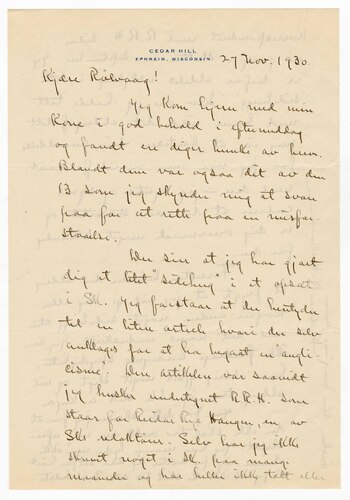 CEDAR HILL
EPHRAIM, WISCONSIN
27 Nov. 1930
Kjære Rölvaag!
Jeg kom hjem med min
Kone i god behold i eftermiddag
og fandt en diger hunke av brev.
Blandt dem var ogsaa dit av den
13 som jeg skynder mig at svare
paa for at rette paa en misfor-
staaelse.
Du sier at jeg har gjort
dig et litet "sideling" i et opsæt
i Sk. Jeg forstaar at du hentyder
til en liten artikel hvori du selv
anklages for at ha begaat en "angli-
cisme". Den artikelen var saavidt
jeg husker undertegnet R.R.H. som
staar for Reidar Rye Haugen, en av
Sks redaktører. Selv har jeg ikke
skrevet noget i Sk. paa mange
maaneder og har heller ikke talt eller